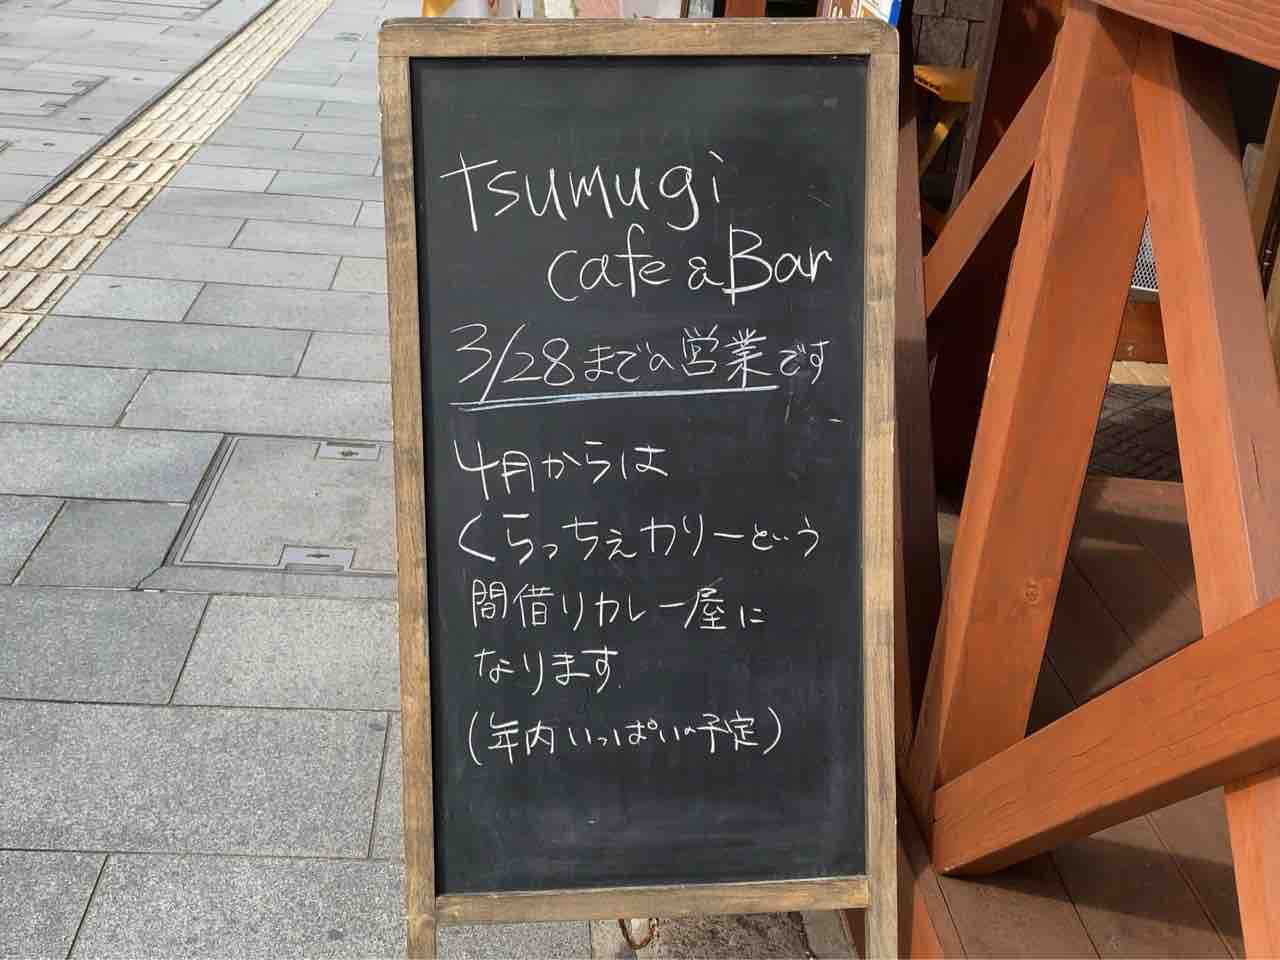 tsumugi
cafe & Bar
3/28までの営業です
4月からは
くらっちぇカリーという
間借りカレー屋に
なります
(年内いっぱいの予定)